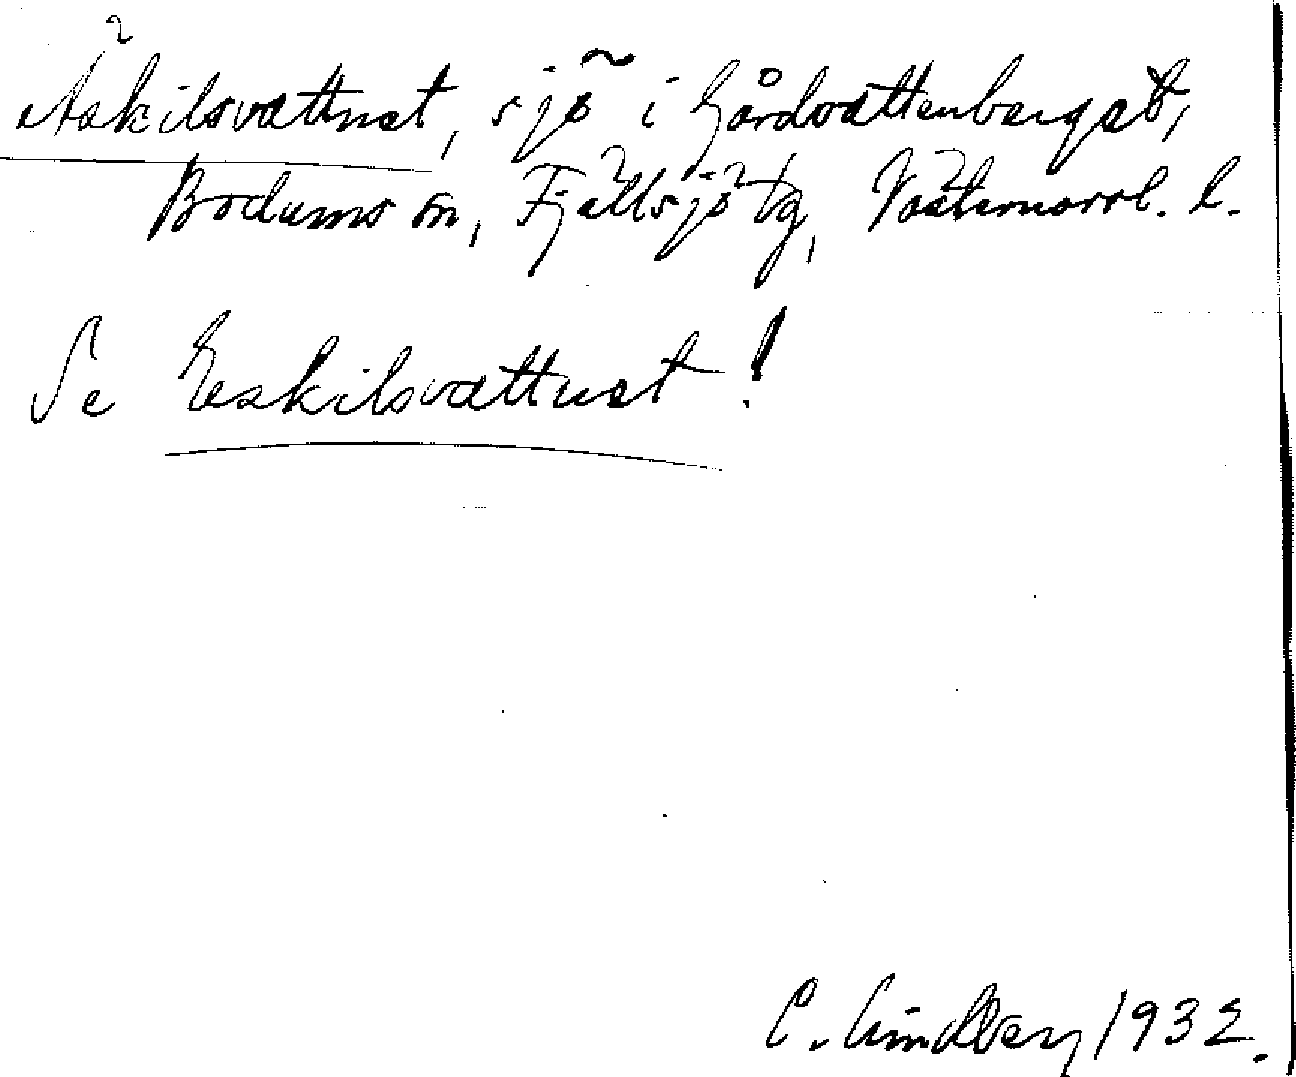 Äskilsvattnet, sjö i Gårdvattenberget,
Bodums sn, Fjällsjö tg, Västernorrl. l.
Se Eskilsvattnet!
C. Lindberg 1932.